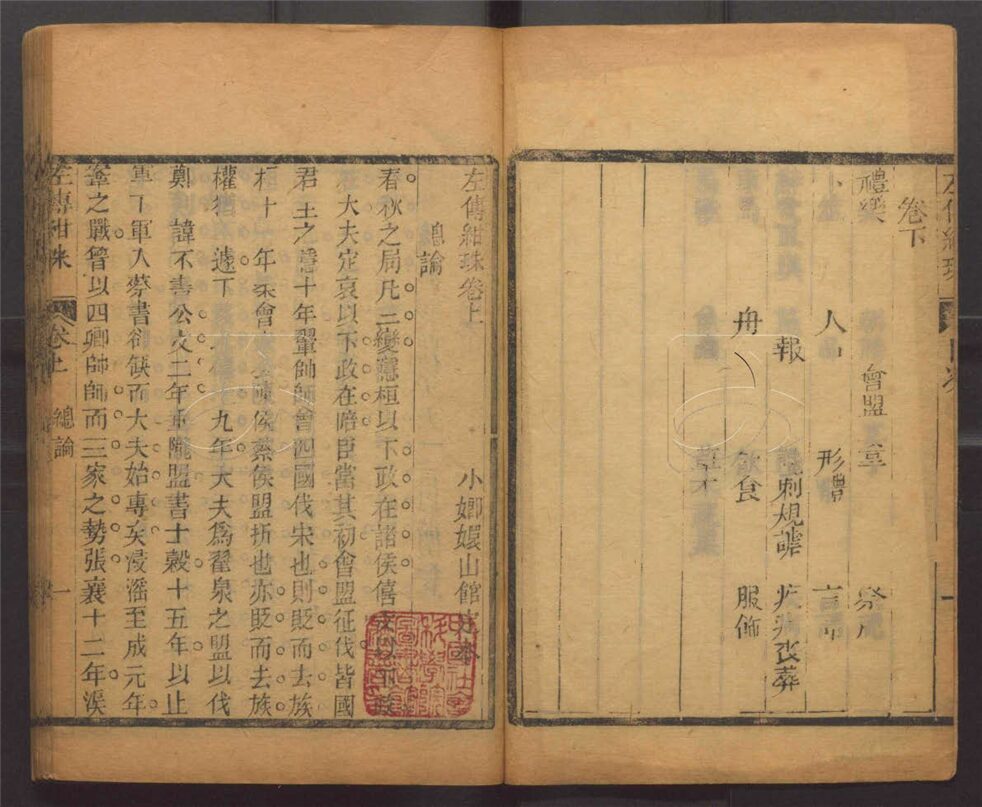 卷下
禮樂 會盟 祭祀
人品 形體 言語
報 刺規謔 疾病喪葬
舟 飲食 服飾
草木
左傳紺珠卷上 小嫏嬛山館
總論
春秋之局凡三變隱桓以下政在諸侯僖文以下政
在大夫定哀以下政在陪臣當其初會盟征伐皆國
君主之隱十年翬帥師會四國伐宋也則貶而去族
桓十一年柔會宋公陳侯蔡侯盟折也亦貶而去族
權猶 遽下 九年大夫為翟泉之盟以伐
鄭 諱不書公文二年垂隴盟書士縠十五年以上
軍下軍入蔡書郤缺而大夫始專矣浸滛至成元年
鞌之戰晉以四卿帥師而三家之勢張襄十二年溴
左傳紺珠 卷上 總論 一